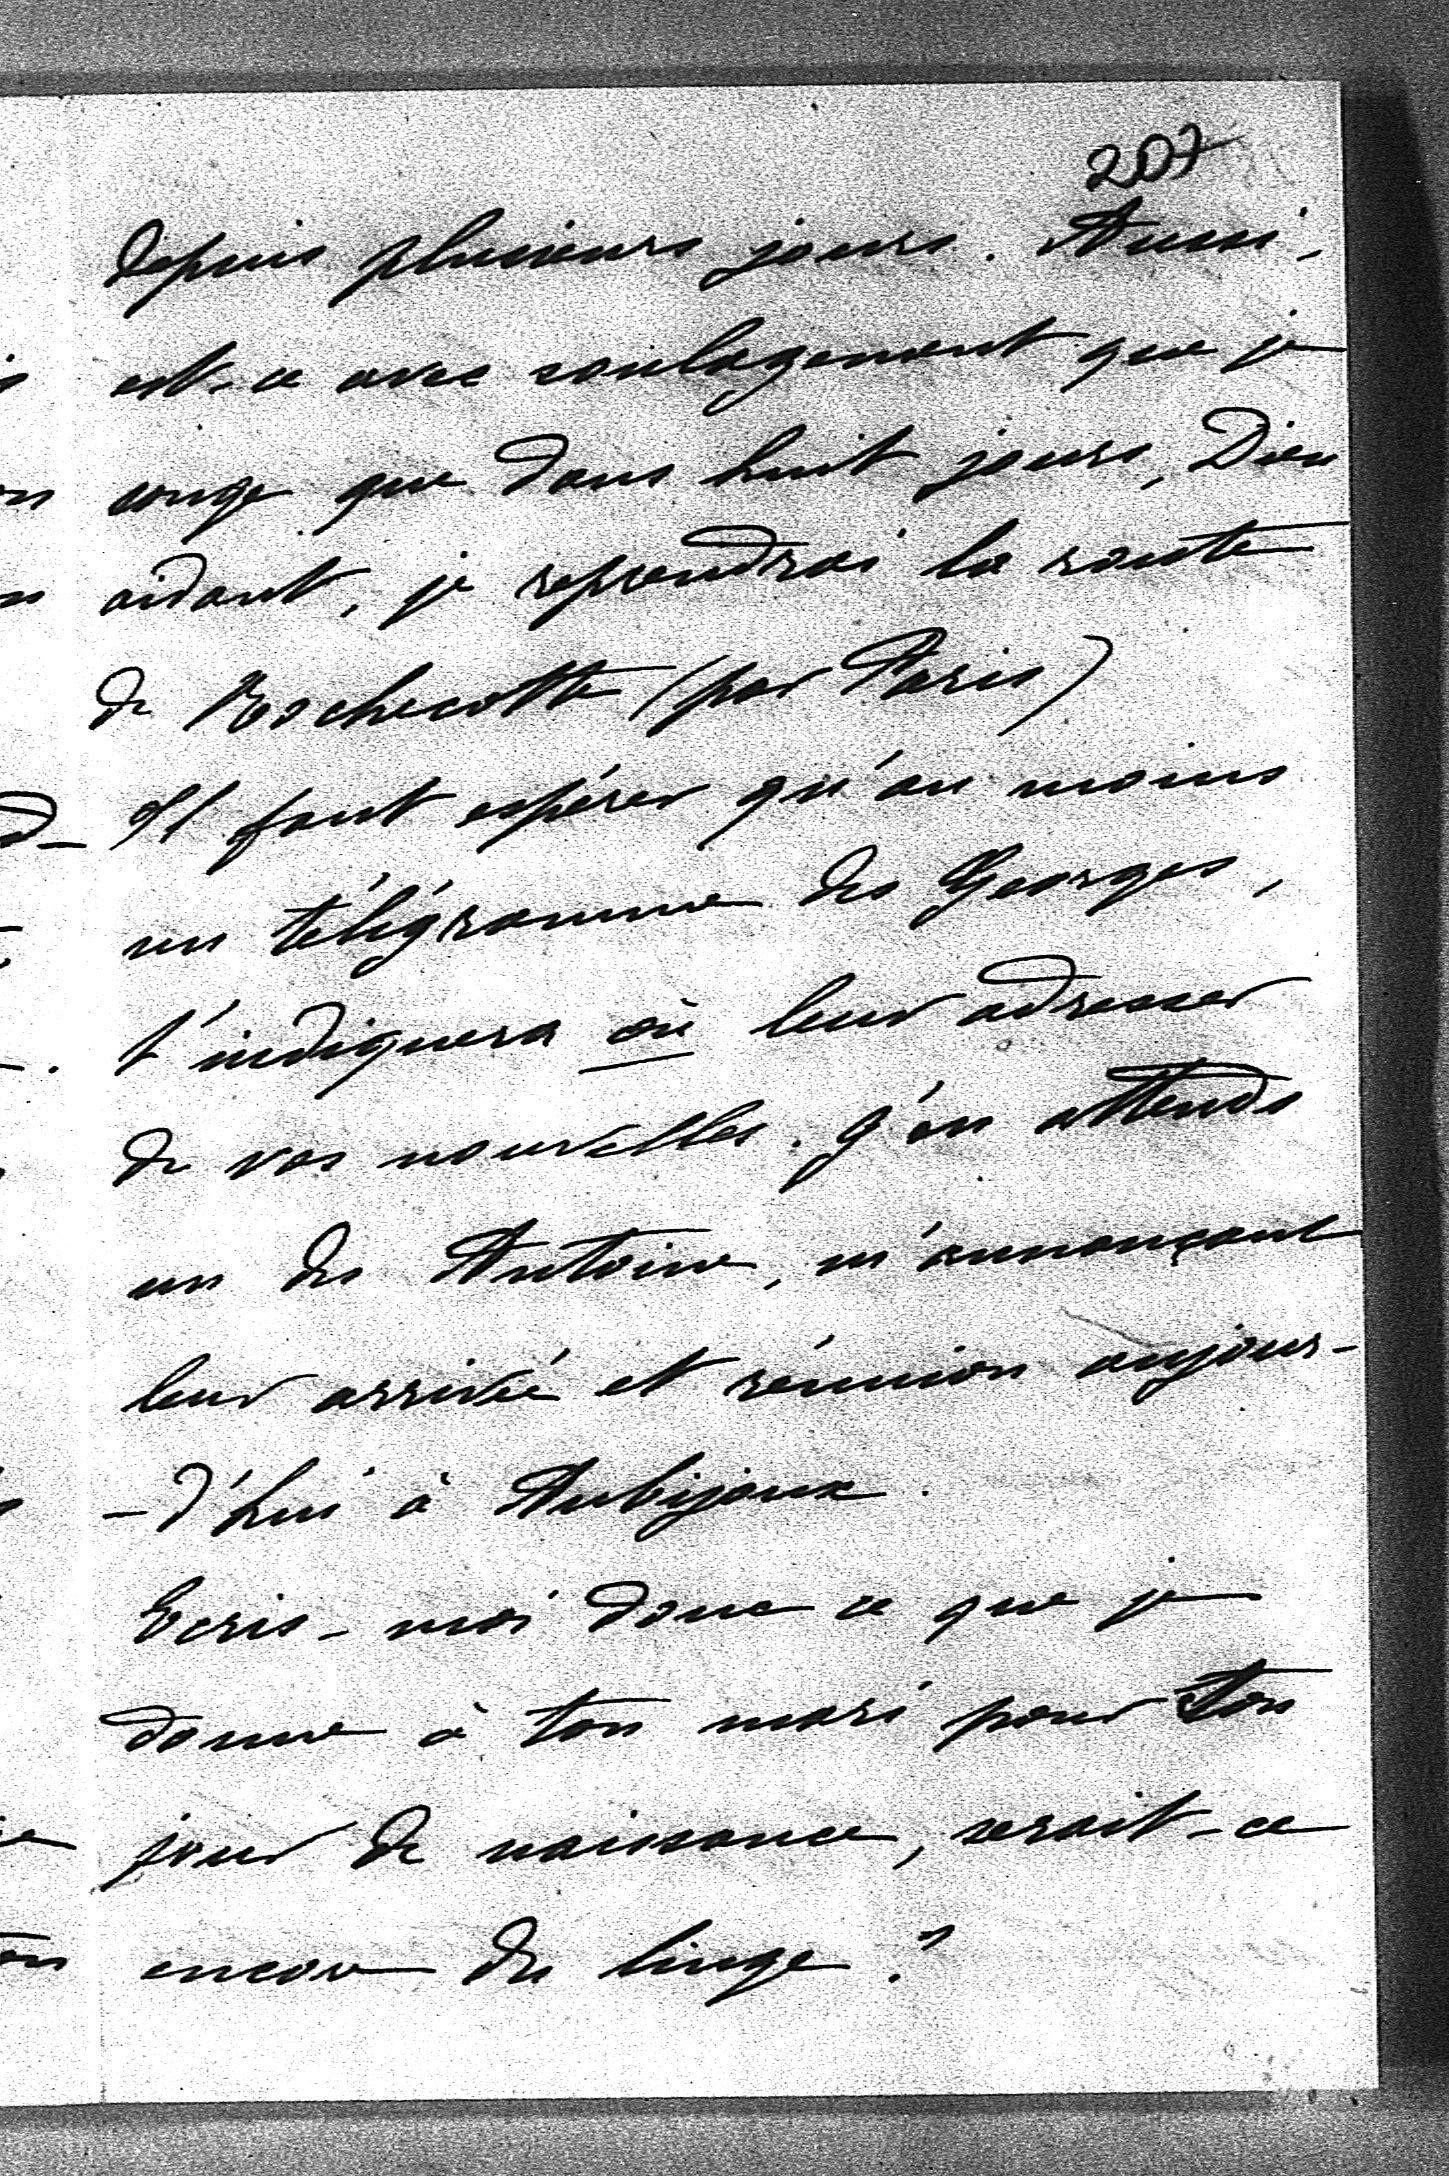 207
depuis plusieurs jours. Aussi,
est-ce avec soulagement que je
songe que dans huit jours, Dieu
aidant, je reprendrai la route
de Rochecotte (par Paris)
Il faut espérer qu'au moins
un télégramme des Georges,
t'indiquera où leur adresser
de vos nouvelles. J'en attends
un des Antoine, m'annonçant
leur arrivée et réunion aujour-
-d'hui à Aubijoux.
Ecris-moi donc ce que je
donne à ton mari pour son
jour de naissance, serait-ce
encore du linge?